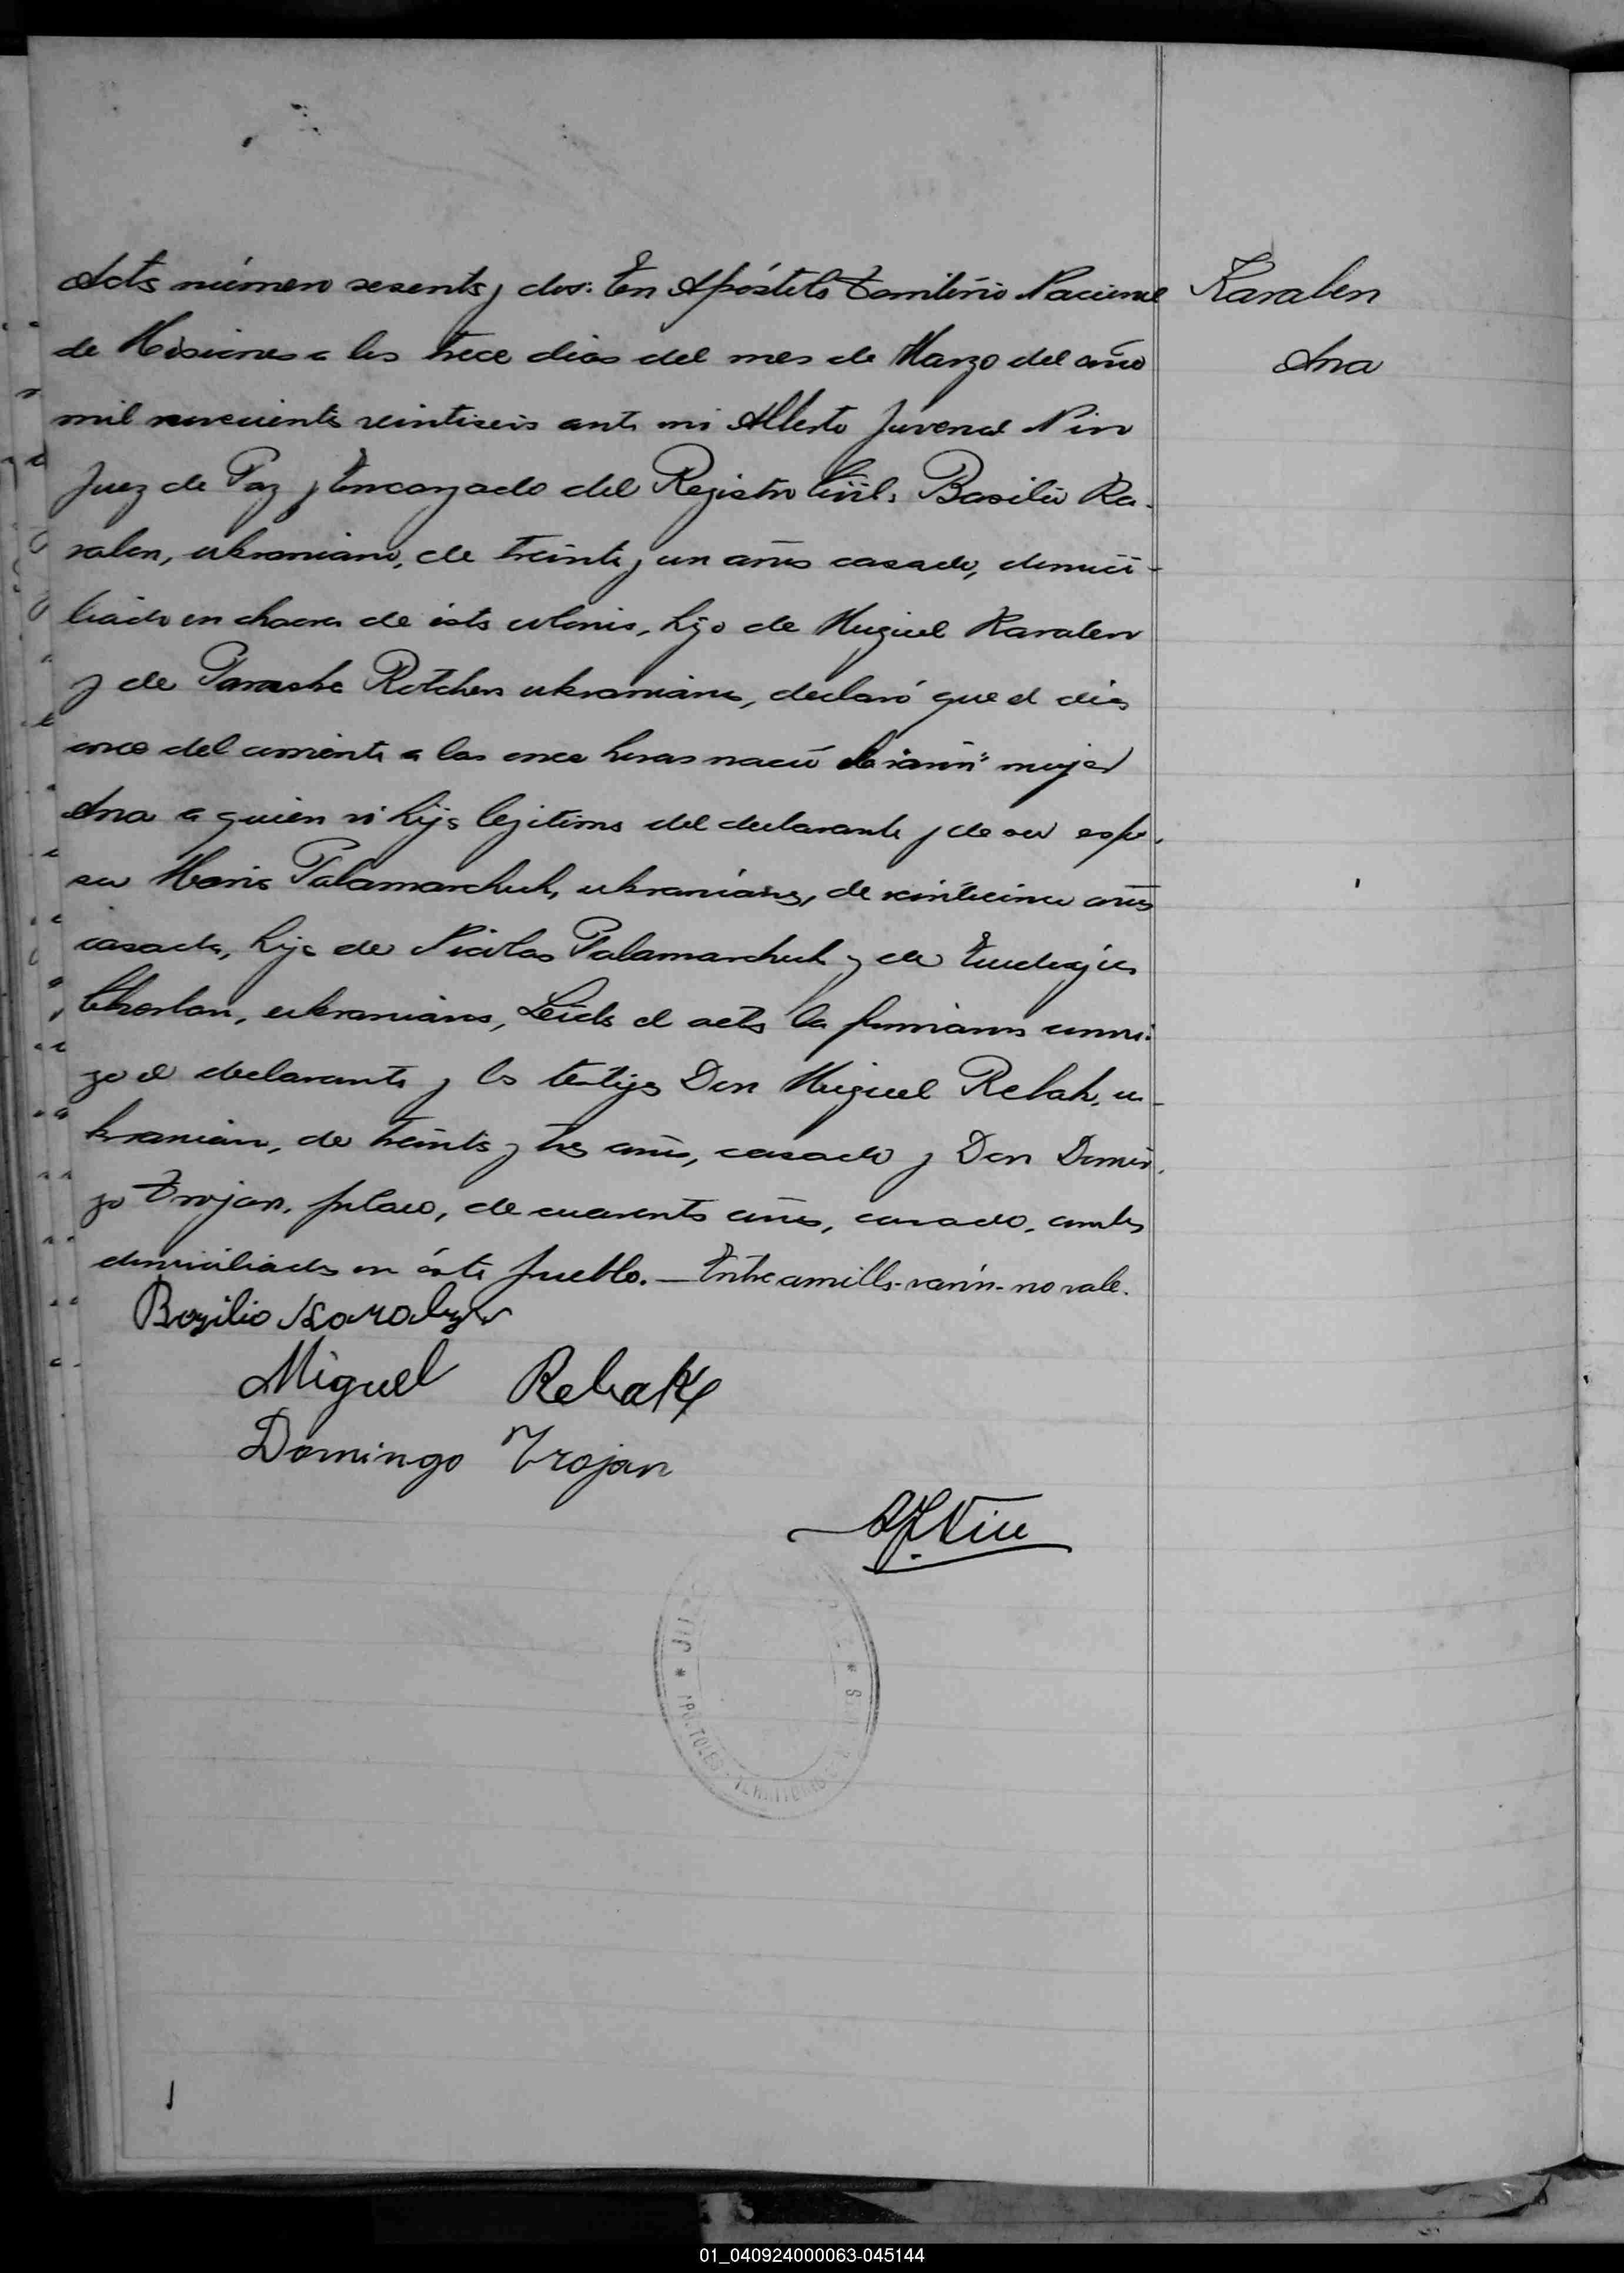 Acta número sesenta y dos: En Apóstoles Territorio Nacional
de Misiones a los trece dias del mes de Marzo del año
mil novecientos veintiseis ante mi Alberto Juvenal Nin
Juez de Paz y Encargado del Registro Civil, Basilio Ka-
ralen, ukraniano, de treinta y un años casado, domici-
liado en chacra de ésta colonia, hijo de Miguel Karalen
y de Paraska Rotchen ukranianos, declaró que el dia
once del corriente a las once horas nació la "varón" mujer
Ana a quien vi hija legitima del declarante y de su espo-
sa Maria Palamarchuk, ukraniana, de veinticinco años
casada, hija de Nicolas Palamarchuk y de
ukranianos, Leida el acta la firmaron conmi-
go el declarante y los testigos Don Miguel Rebak, u-
kraniano, de treinta y tres años, casado y Don Domin-
go Trojan, polaco, de cuarenta años, casado, ambos
domiciliados en éste pueblo.— Entre comillas-varón-no vale.
Karalen
Ana
Bazilio
Miguel Rebak
Domingo Trojan
AJNin
APOSTOLES TERRITORIO
01_040924000063-045144